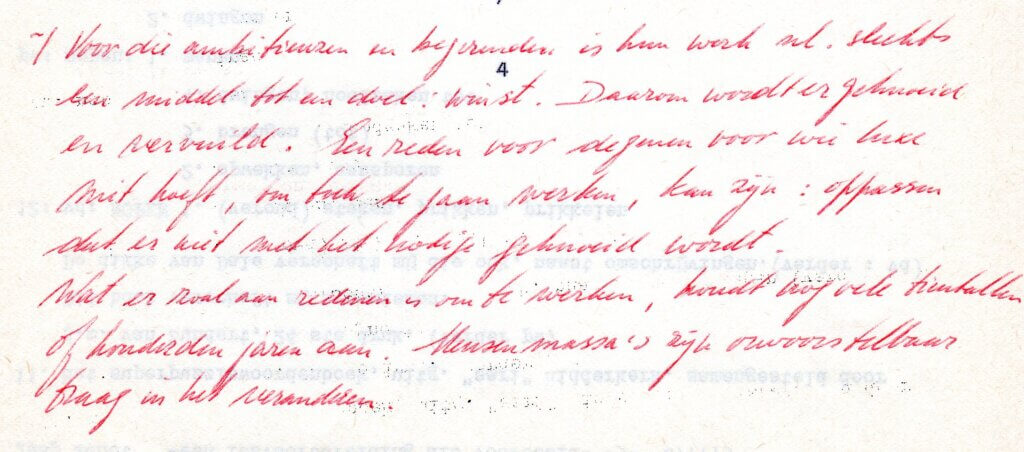 7) Voor die ambitieuzen en begeerenden is hun werk nl. slechts
4
een middel tot een doel: winst. Daarom wordt er geknoeid
en vervuild. Een reden voor degenen voor wie luxe
niet hoeft, om toch te gaan werken, kan zijn: oppassen
dat er niet met het nodige geknoeid wordt.
Wat er zoal aan redenen is om te werken, houdt nog vele tientallen
of honderden jaren aan. Mensenmassa's zijn onvoorstelbaar
traag in het veranderen.